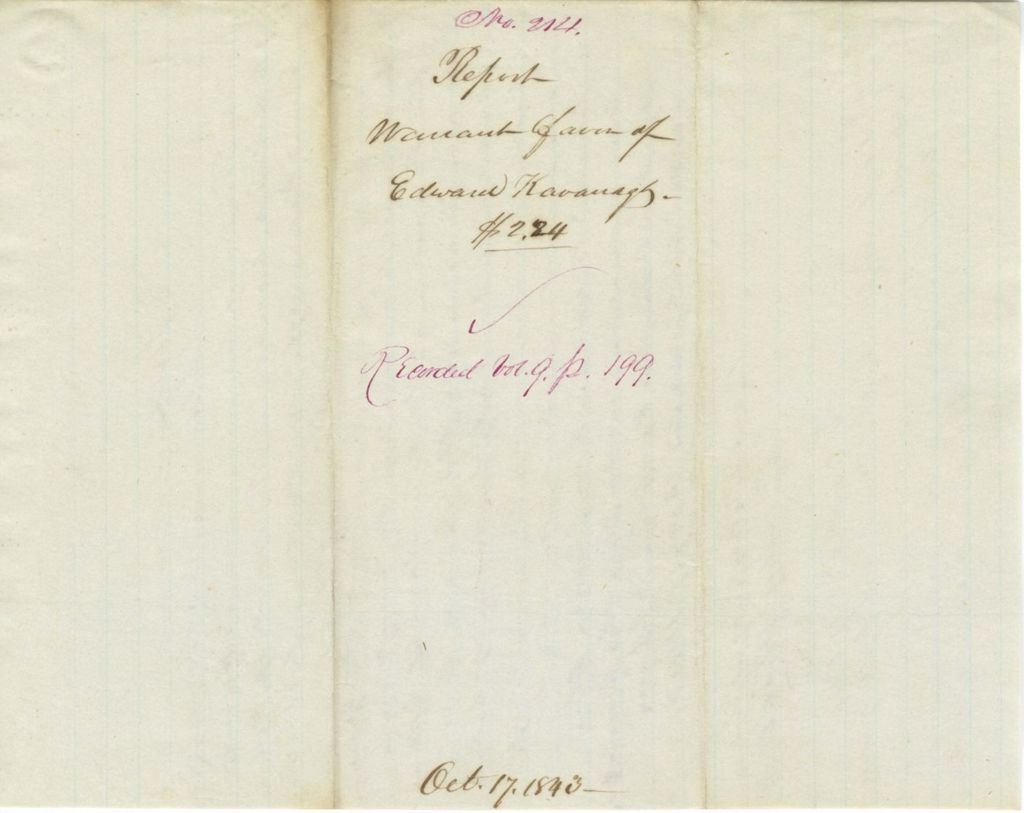 No. 214.
Report
Warrant favor of
Edward Kavanagh-
$2.24
Recorded Vol. 9. p. 199.
Oct. 17. 1843-